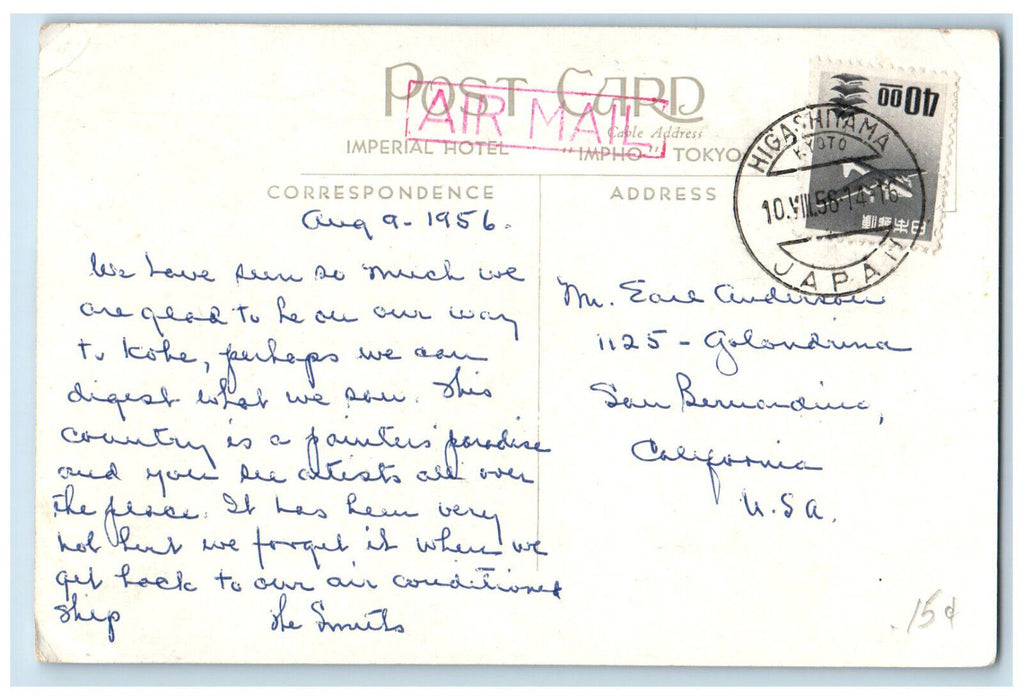 POST CARD
AIR MAIL
Cable Address
IMPERIAL HOTEL "IMPHO" TOKYO
CORRESPONDENCE
ADDRESS
Aug 9 - 1956.
We have seen so much we
are glad to be on our way
to Kobe, perhaps we can
digest what we saw. This
country is a painters' paradise
and you see artists all over
the place. It has been very
hot but we forget it when we
get back to our air conditioned
ship
The Smiths
Mr. Earl Anderson
1125 - Golondrina
San Bernardino,
California
U.S.A.
40.00
日本郵便
HIGASHIYAMA
KYOTO
10.VIII.56.14-16
JAPAN
.15¢